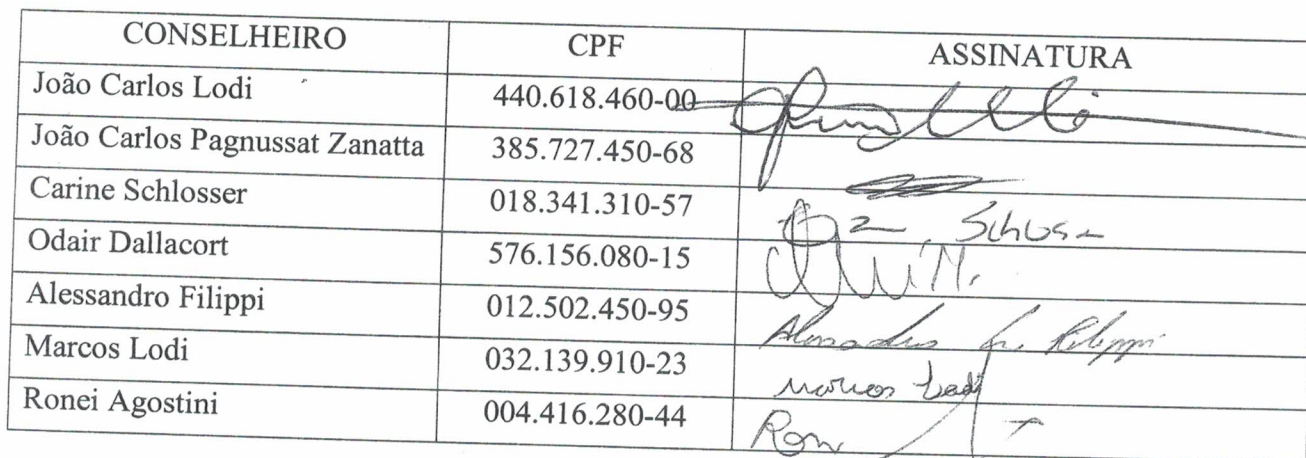 CONSELHEIRO CPF ASSINATURA
João Carlos Lodi 440.618.460-00
João Carlos Pagnussat Zanatta 385.727.450-68
Carine Schlosser 018.341.310-57
Odair Dallacort 576.156.080-15
Alessandro Filippi 012.502.450-95
Marcos Lodi 032.139.910-23 Marcos Lodi
Ronei Agostini 004.416.280-44